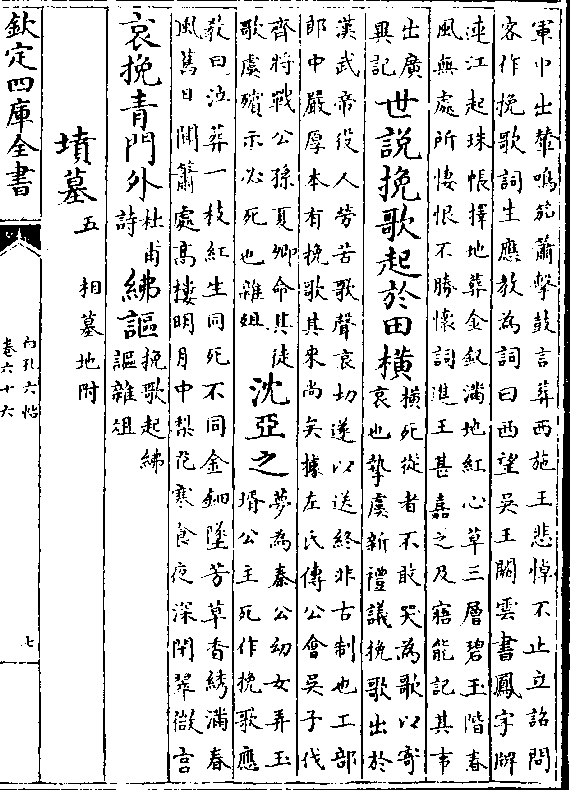 軍中出輦鳴笳簫擊鼓言葬西施王悲悼不止立詔問
客作挽歌詞生應教為詞曰西望吳王闕雲書鳳字牌
連江起珠帳擇地葬金釵滿地紅心草三層碧玉階春
風無處所悽恨不勝懷詞進王甚嘉之及寤能記其事
出廣異記 世說挽歌起於田橫 橫死從者不敢哭為歌以寄哀也摯虞新禮議挽歌出於
漢武帝役人勞苦歌聲哀切遂以送終非古制也工部
郎中嚴厚本有挽歌其來尚矣據左氏傳公會吳子伐
齊將戰公孫夏卿命其徒歌虞殯示必死也雜俎 沈亞之 夢為秦公幼女弄玉壻公主死作挽歌應
教曰泣葬一枝紅生同死不同金鈿墜芳草香綉滿春
風舊日聞簫處高樓明月中梨花寒食夜深閉翠微宮
哀挽青門外 杜甫詩 紼謳 挽歌起紼謳雜俎
墳墓五 相墓地附
欽定四庫全書
白孔六帖
卷六十六
七